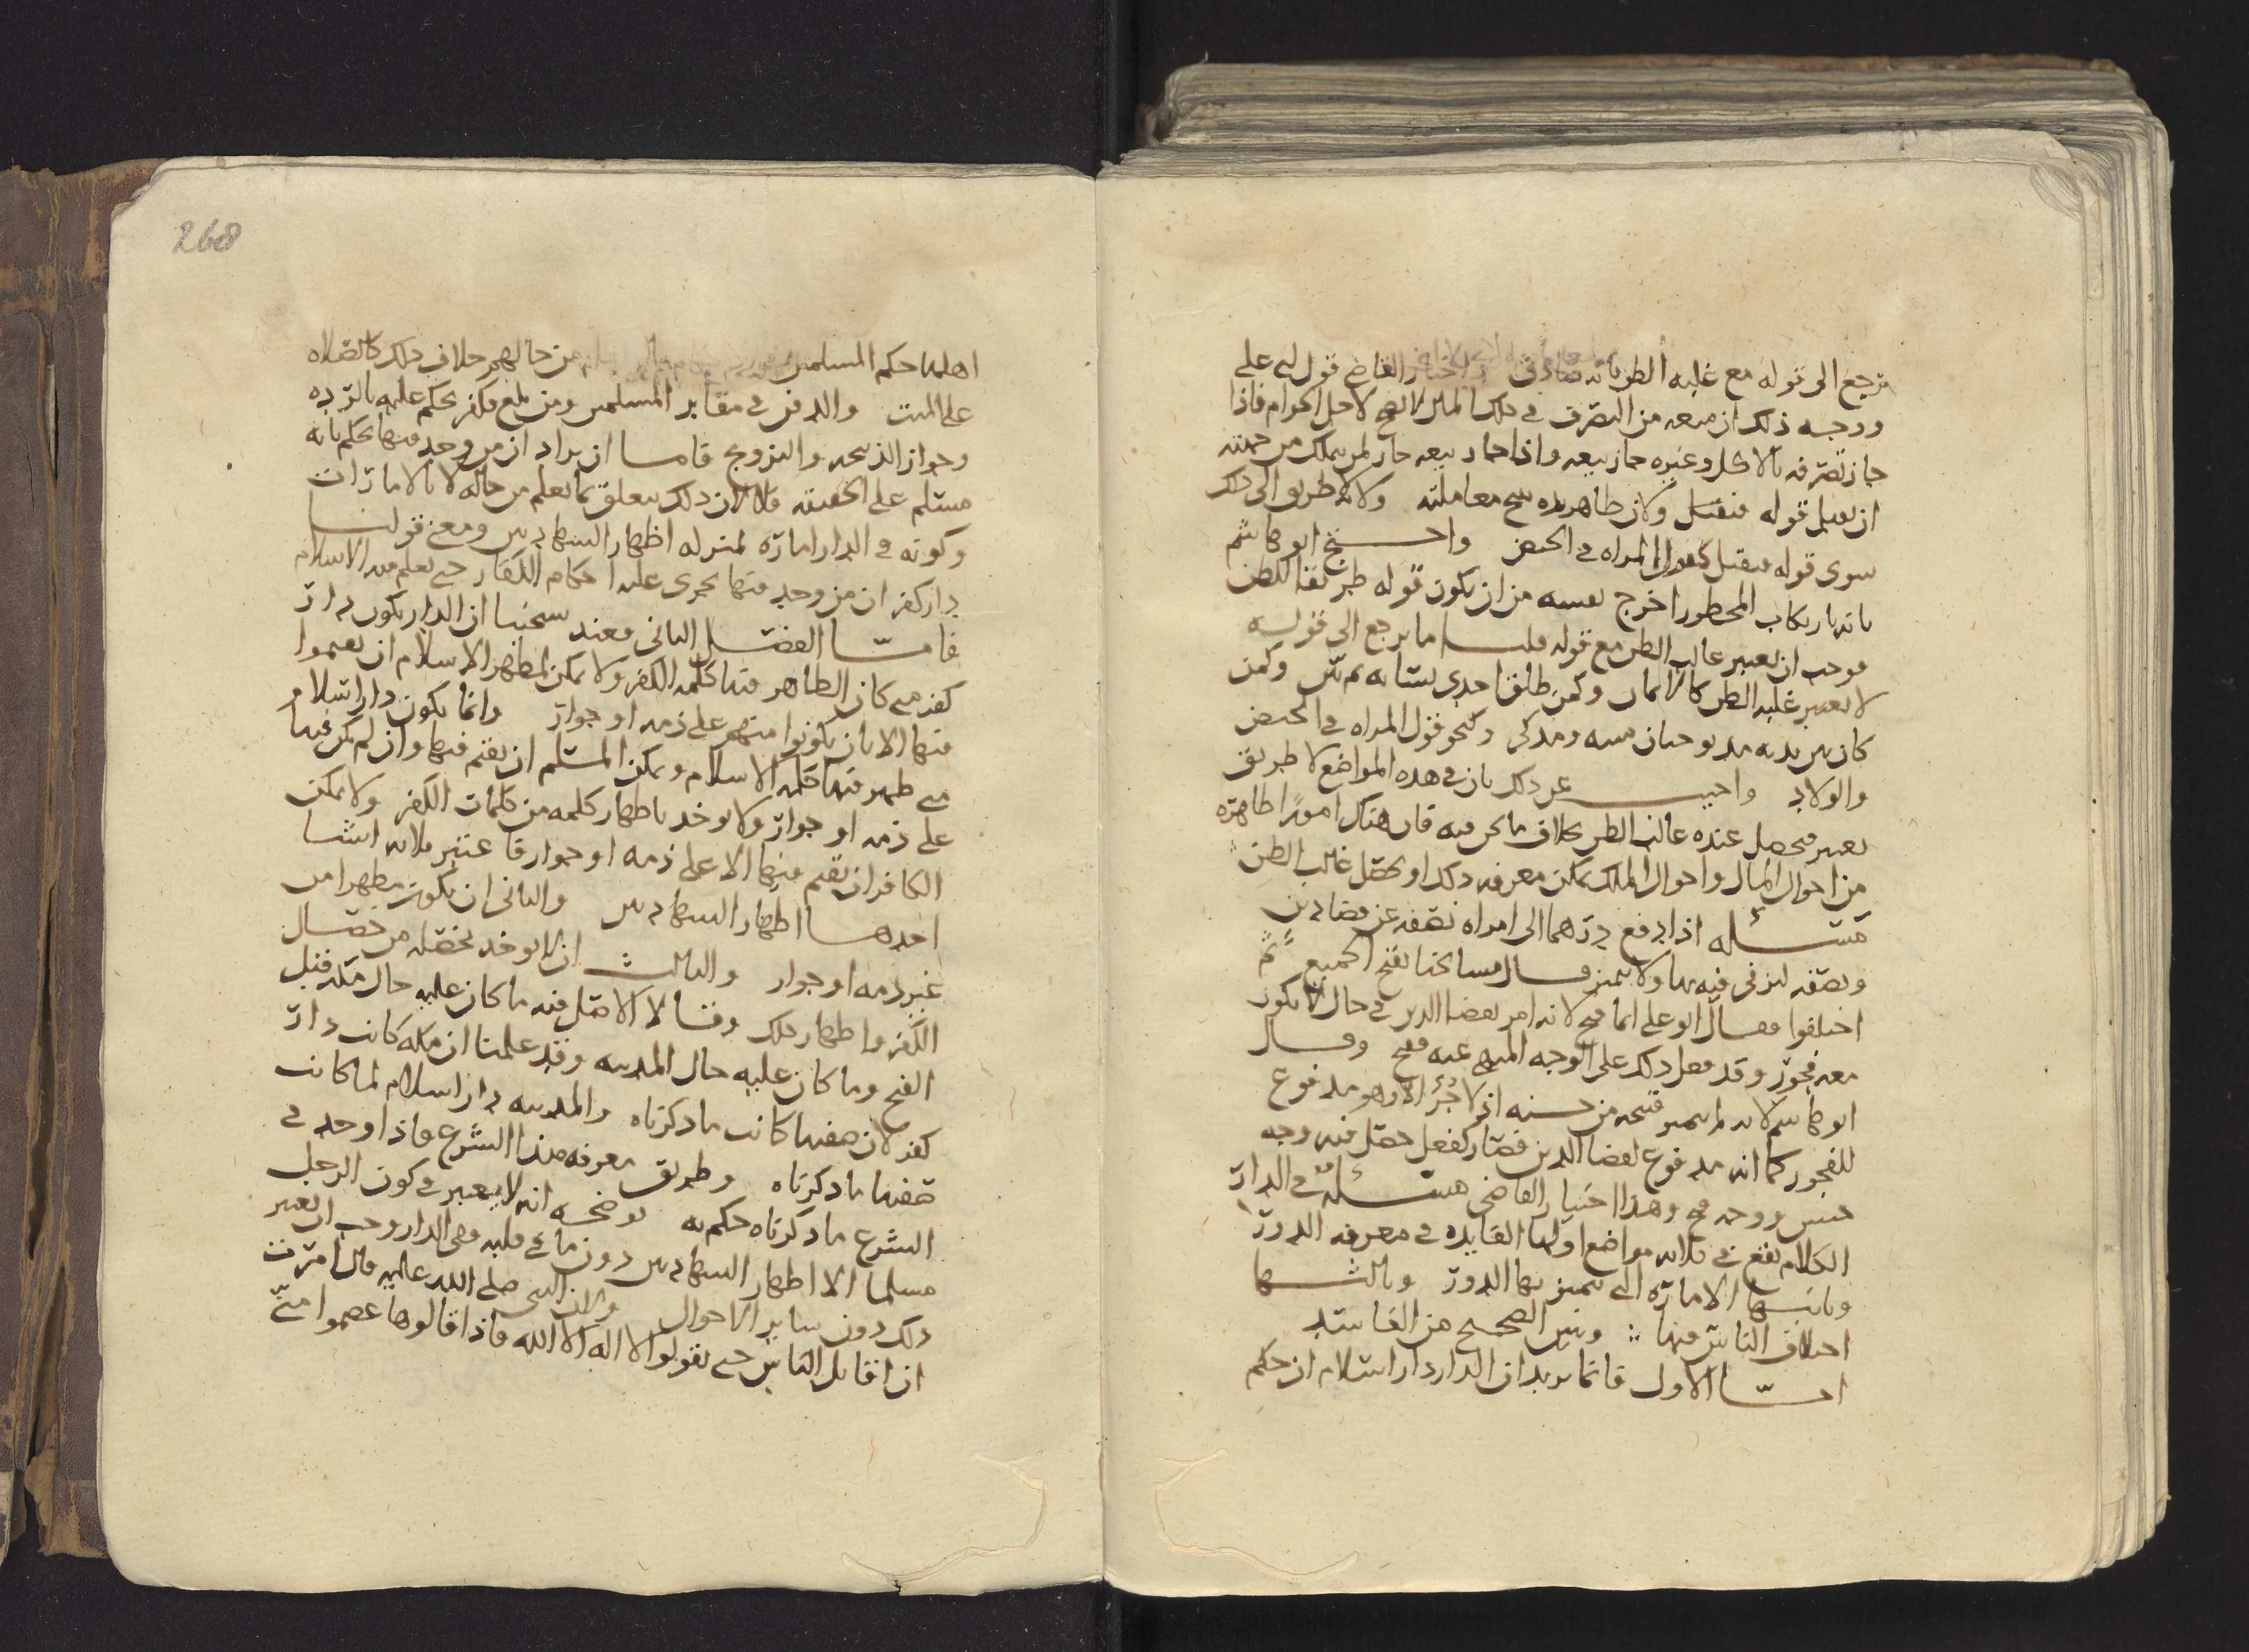 يرجع الى قوله مع غلبه الظن بانه صادق القاضي قول ابي علي
ووجه ذلك ان منعه من التصرف في ذلك المال لا يصح لاجل الحرام فاذا
جاز تصرفه بالاكل وغيره جاز بيعه واذا جاز بيعه جاز لمن يملك من جهته
ان يقبل قوله فيقبل ولان ظاهر يده يصح معاملته ولانه لا طريق الى ذلك
سوى قوله فيقبل كقول المراه في الحيض واحتج ابو هاشم
بانه بارتكاب المحظور اخرج نفسه من ان يكون قوله طريقا للظن
فوجب ان يعتبر غالب الظن مع قوله قلنا ما يرجع الى قوله
لا يعتبر غلبه الظن كالايمان وكمن طلق احدى نسائه وكمن
كان بين يديه مذبوحتان ميته ومذكى وكنحو قول المراه في الحيض
والولاد واجيب عن ذلك بان في هذه المواضع لا طريق
يعتبر فيحصل عنده غالب الظن بخلاف ما نحن فيه فان هناك امورا ظاهره
من احوال المال واحوال الملك يمكن معرفه ذلك او يحصل غالب الظن
مسئله اذا دفع درهما الى امراه نصفه عن قضا دين
ونصفه ليزني فيه بها ولا يتميز قال مشايخنا يقبح الجميع ثم
اختلفوا فقال ابو علي انما قبح لانه امر بقضا الدين في حال لا يكون
معه فجور وقد فعل ذلك على الوجه المنهي عنه فقبح وقال
ابو هاشم لانه لم يتميز قبيحه من حسنه اذ لا جزء الا وهو مدفوع
للفجور كما انه مدفوع لقضا الدين فصار كفعل حصل فيه وجه
حسن ووجه قبح وهذا اختيار القاضي مسئله في الدار
الكلام يقع في ثلاثه مواضع اولها الفايده في معرفه الدور
وثانيها الاماره التي يتميز بها الدور وثالثها
اختلاف الناس فيها وتبين الصحيح من الفاسد
امّا الاول فانما يريد ان الدار دار اسلام ان حكم
268
اهلها حكم المسلمين من حالهم خلاف ذلك كالصلاه
على الميت والدفن في مقابر المسلمين ومن بلغ فكفر يحكم عليه بالرده
وجواز الذبيحه والتزويج فاما ان يراد ان من وجد فيها يحكم بانه
مسلم على الحقيقه فلا لان ذلك يتعلق بما يعلم من حاله لا بالامارات
وكونه في الدار اماره بمنزله اظهار الشهادتين ومعنى قولنا
دار كفر ان من وجد فيها يجري عليه احكام الكفار حتى يعلم منه الاسلام
فامّا الفصل الثاني فعند شيخنا ان الدار يكون دار
كفر متى كان الظاهر فيها كلمه الكفر ولا يمكن لمظهر الاسلام ان يقيموا
فيها الا بان يكونوا منهم على ذمه او جوار وانما يكون دار اسلام
متى ظهر فيها كلمه الاسلام ويمكن المسلم ان يقيم فيها وان لم يكن فيها
على ذمه او جوار ولا يوخذ باظهار كلمه من كلمات الكفر ولا يمكن
الكافر ان يقيم فيها الا على ذمه او جوار فاعتبر ثلاثه اشيا
احدها اظهار الشهادتين والثاني ان يكون مظهرا من
غير ذمه او جوار والثالث ان لا يوخذ بخصله من خصال
الكفر واظهار ذلك وقالا الاصل فيه ما كان عليه حال مكه قبل
الفتح وما كان عليه حال المدينه وقد علمنا ان مكه كانت دار
كفر لان صفتها كانت ما ذكرناه والمدينه دار اسلام لما كانت
صفتها ما ذكرناه وطريق معرفه هذا الشرع فاذا وجد في
الشرع ما ذكرناه حكم به يوضحه انه لا يعتبر في كون الرجل
مسلما الا اظهار الشهادتين دون ما في قلبه ففي الدار وجب ان يعتبر
ذلك دون ساير الاحوال ولان النبي صلى الله عليه قال امرت
ان اقاتل الناس حتى يقولوا لا اله الا الله فاذا قالوها عصموا منّي